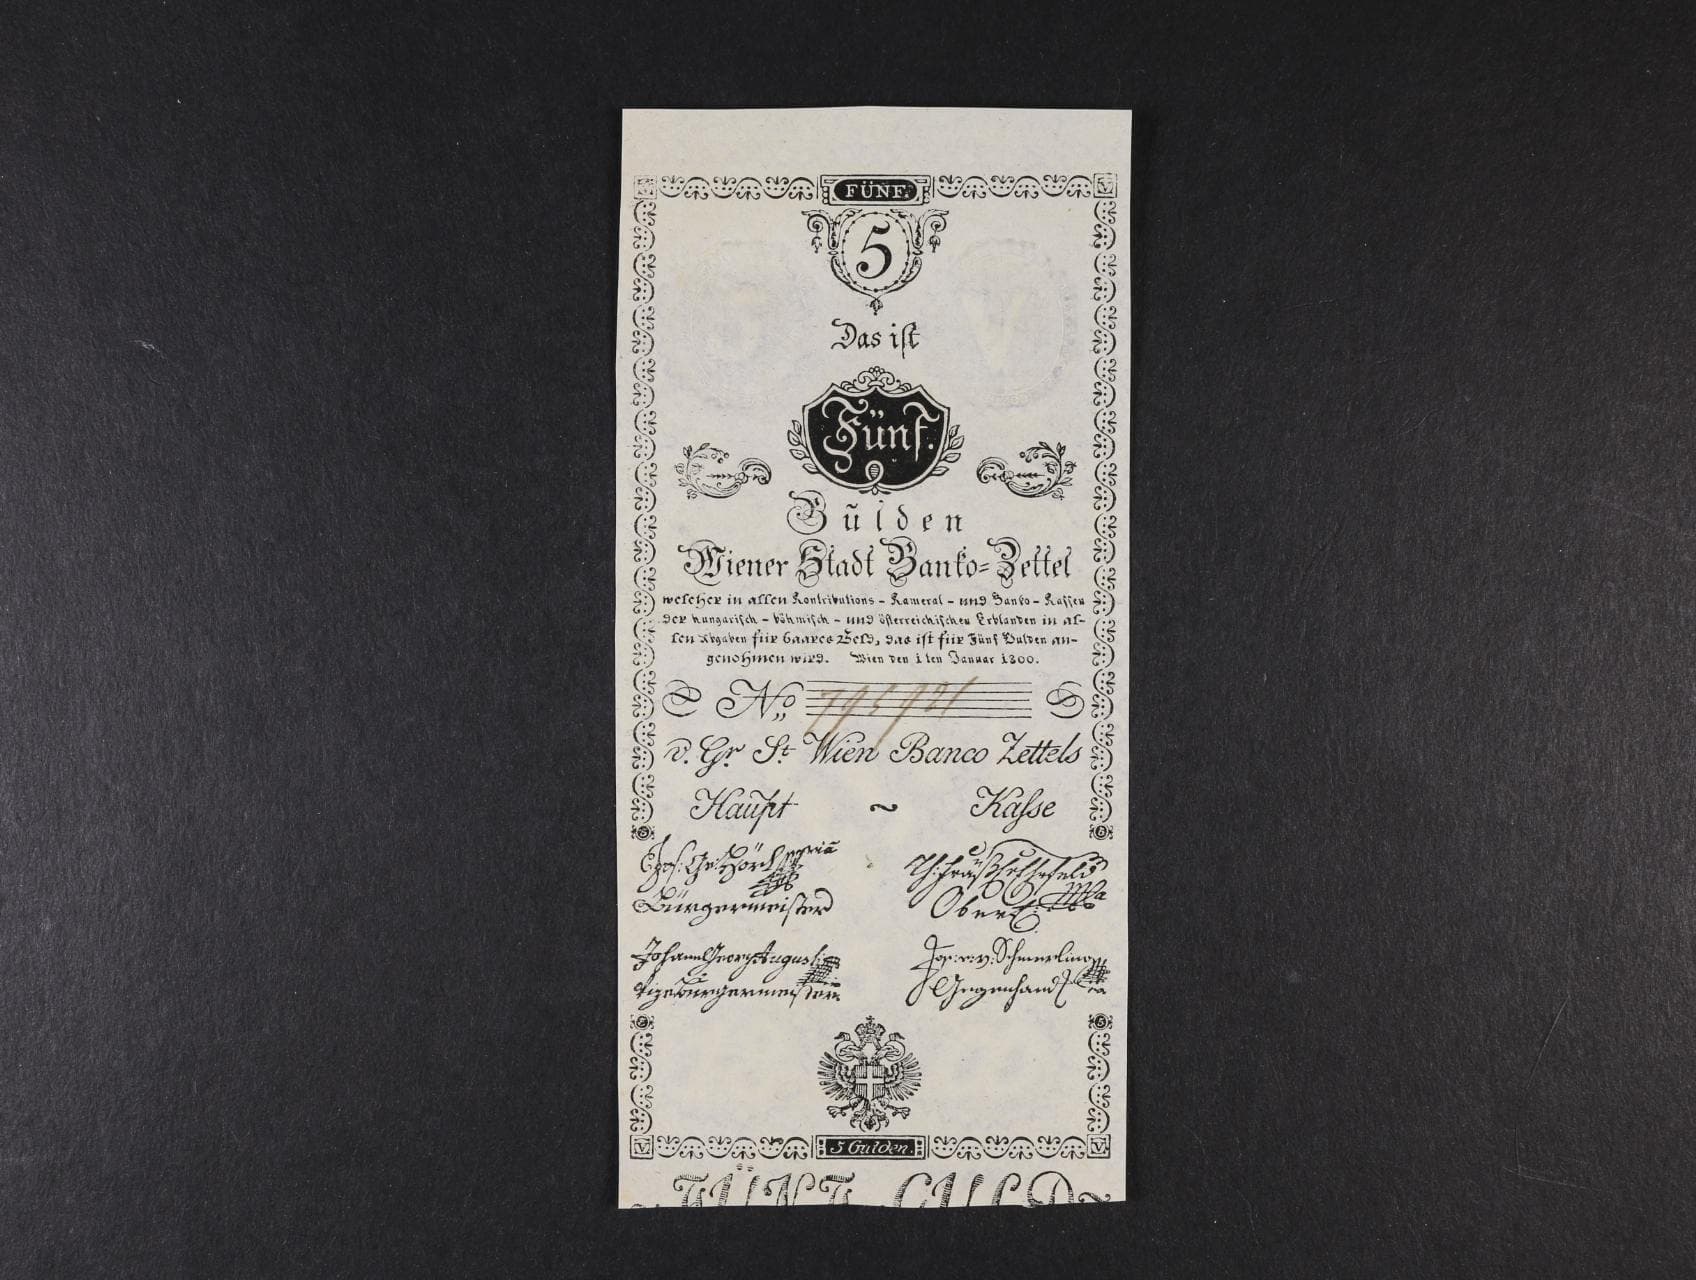 FÜNF.
V
5
Das ist
Fünf.
Gulden
Wiener Stadt Banko-Zettel
welcher in allen Kontributions - Kameral - und Banko - Kassen
der hungarisch - böhmisch - und österreichischen Erblanden in al-
len Abgaben für baares Geld, das ist für Fünf Gulden an-
genohmen wird. Wien den 1ten Januar 1800.
No 795921
v. Gr St Wien Banco Zettels
Haupt ~ Kasse
Bürgermeister
Johann Georg Augusti
Jos. v. Schmerling
Vizebürgermeister
Gegenhand
5 5
5 5
V 5 Gulden. V
FÜNF GULD